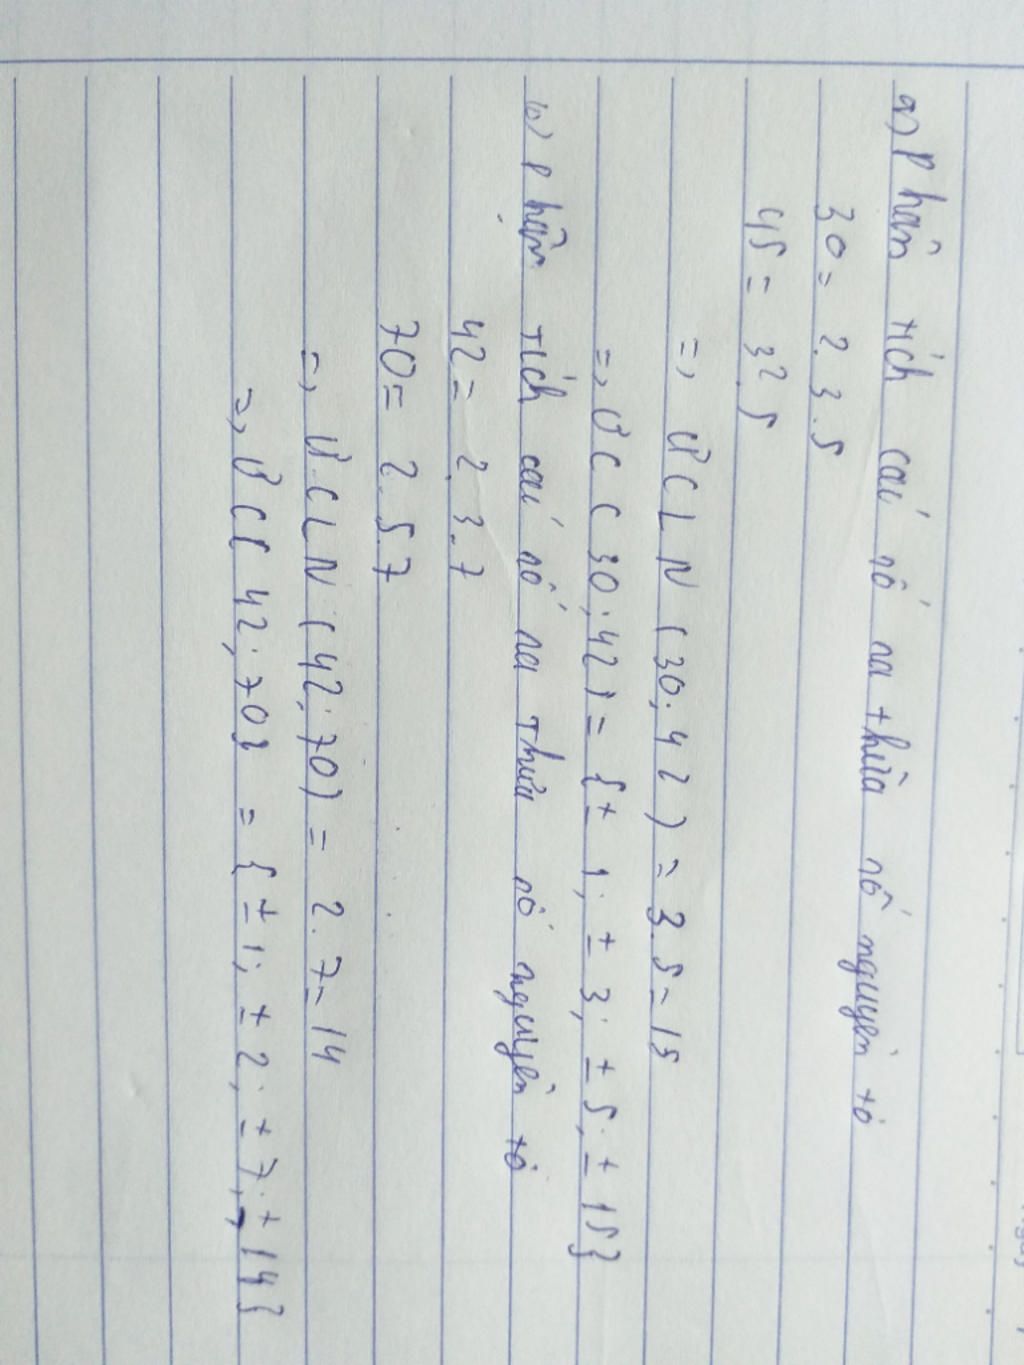 a) Phân tích các số ra thừa số nguyên tố
30 = 2.3.5
45 = 3².5
=> ƯCLN (30; 42) = 3.5 = 15
=> ƯC (30; 42) = {± 1; ± 3; ± 5; ± 15}
b) Phân tích các số ra thừa số nguyên tố
42 = 2.3.7
70 = 2.5.7
=> ƯCLN (42; 70) = 2.7 = 14
=> ƯC( 42; 70} = {± 1; ± 2; ± 7; ± 14}